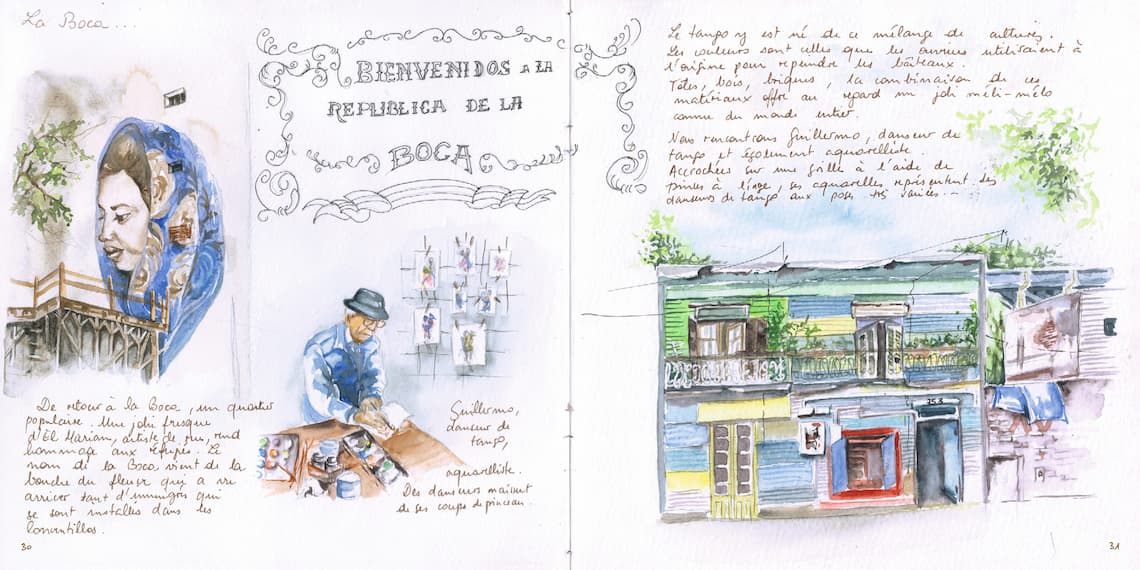 La Boca...
BIENVENIDOS A LA
REPUBLICA DE LA
BOCA
De retour à la Boca, un quartier
populaire. Une jolie fresque
d'El Marian, artiste de rue, rend
hommage aux réfugiés. Le
nom de la Boca vient de la
bouche du fleuve qui a vu
arriver tant d'immigrés qui
se sont installés dans les
conventillos.
30
Guillermo,
danseur de
tango,
aquarelliste.
Des danseurs naissent
de ses coups de pinceau.
Le tango y est né de ce mélange de cultures.
Les couleurs sont celles que les ouvriers utilisaient à
l'origine pour repeindre les bâteaux.
Tôles, bois, briques, la combinaison de ces
matériaux offre au regard un joli méli-mélo
connu du monde entier.
Nous rencontrons Guillermo, danseur de
tango et également aquarelliste.
Accrochées sur une grille à l'aide de
pinces à linge, ses aquarelles représentent des
danseurs de tango aux poses très variées...
353
31